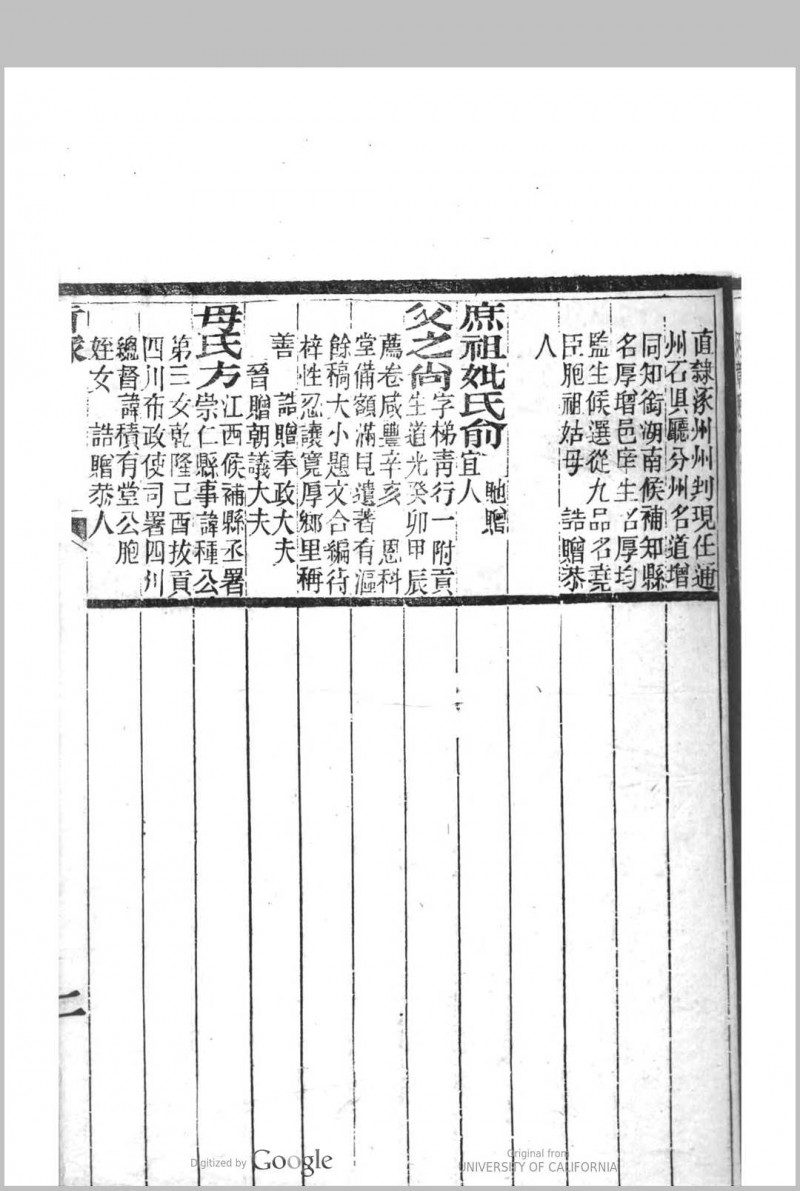 直隸涿州州判現任通
州石俱廳分州名道增
同知銜湖南候補知縣
名厚增邑庠生名厚均
監生候選從九品名堯
臣胞祖姑母　誥贈恭
人
庶祖妣氏俞　馳贈
宜人
父之尙字梯靑行一附貢
生道光癸卯甲辰
薦卷咸豐辛亥　恩科
堂備額滿見遺著有漚
餘稿大小題文合編待
梓性忍讓寬厚鄉里稱
善　誥贈奉政大夫
晉贈朝議大夫
母氏方江西候補縣丞署
崇仁縣事諱種公
第三女乾隆己酉拔貢
四川布政使司署四川
總督諱積有堂公胞
姪女　誥贈恭人
二
Digitized by Google
Original from
UNIVERSITY OF CALIFORNIA